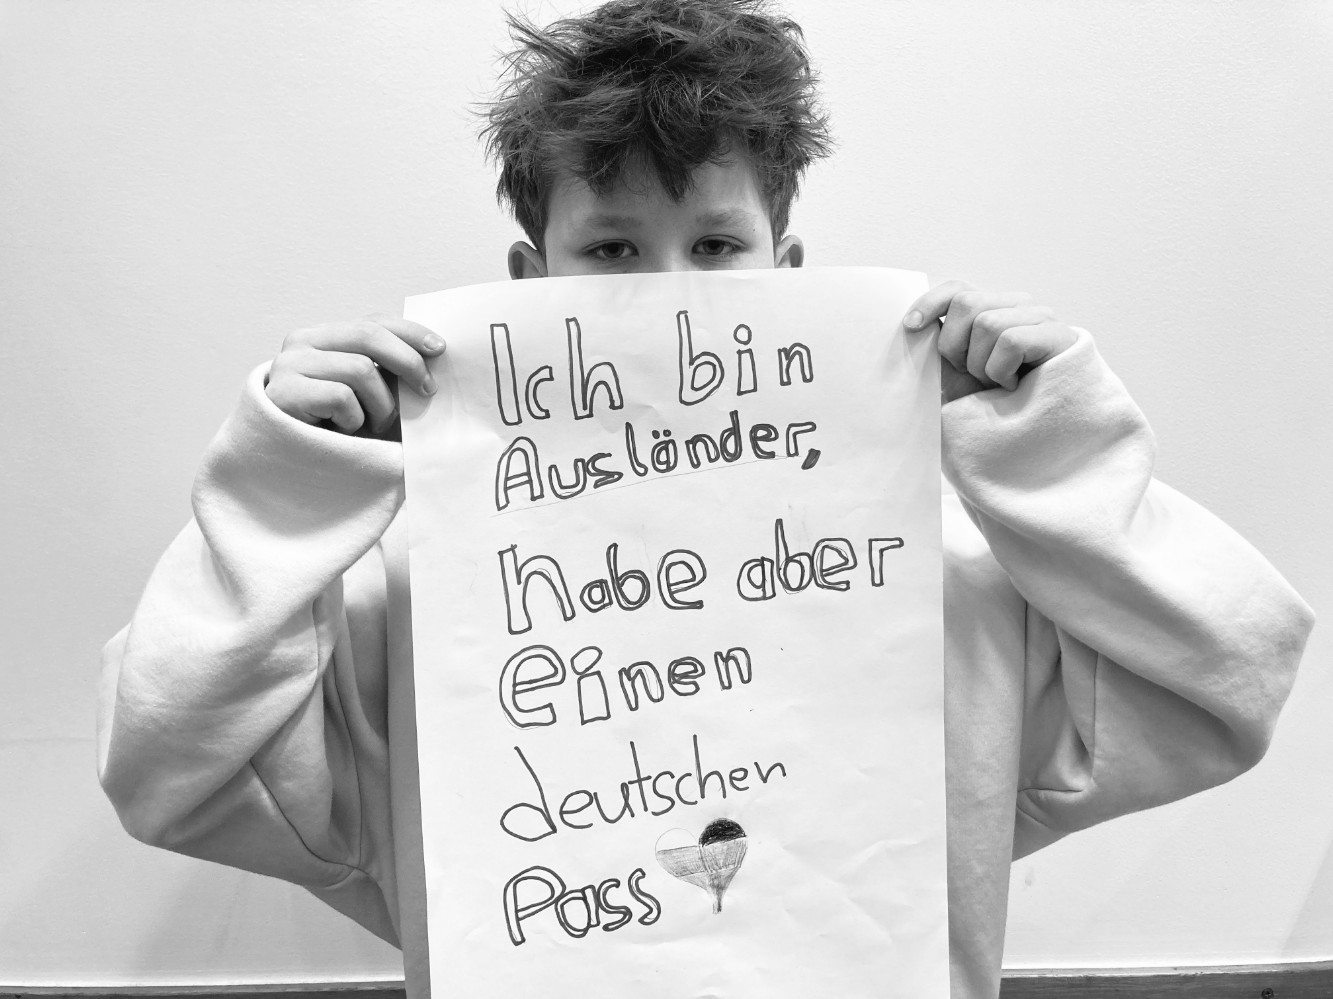 Ich bin
Ausländer,
habe aber
einen
deutschen
Pass